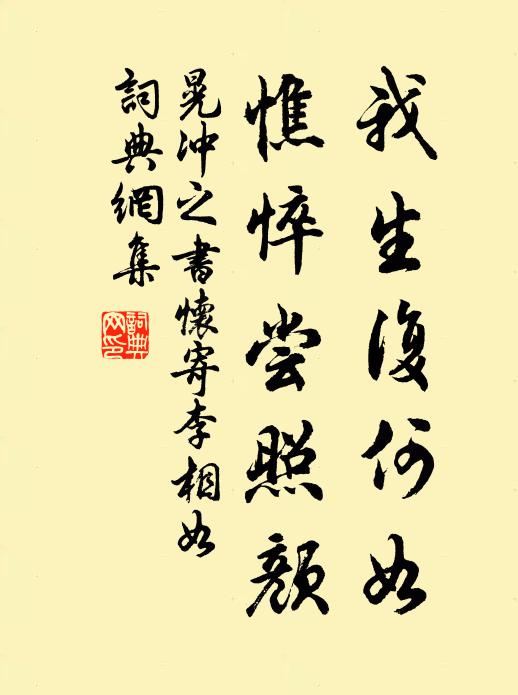 我生復何如
憔悴尝照颜
晃沖之書懷寄李相如
詞典網集
詞典网印